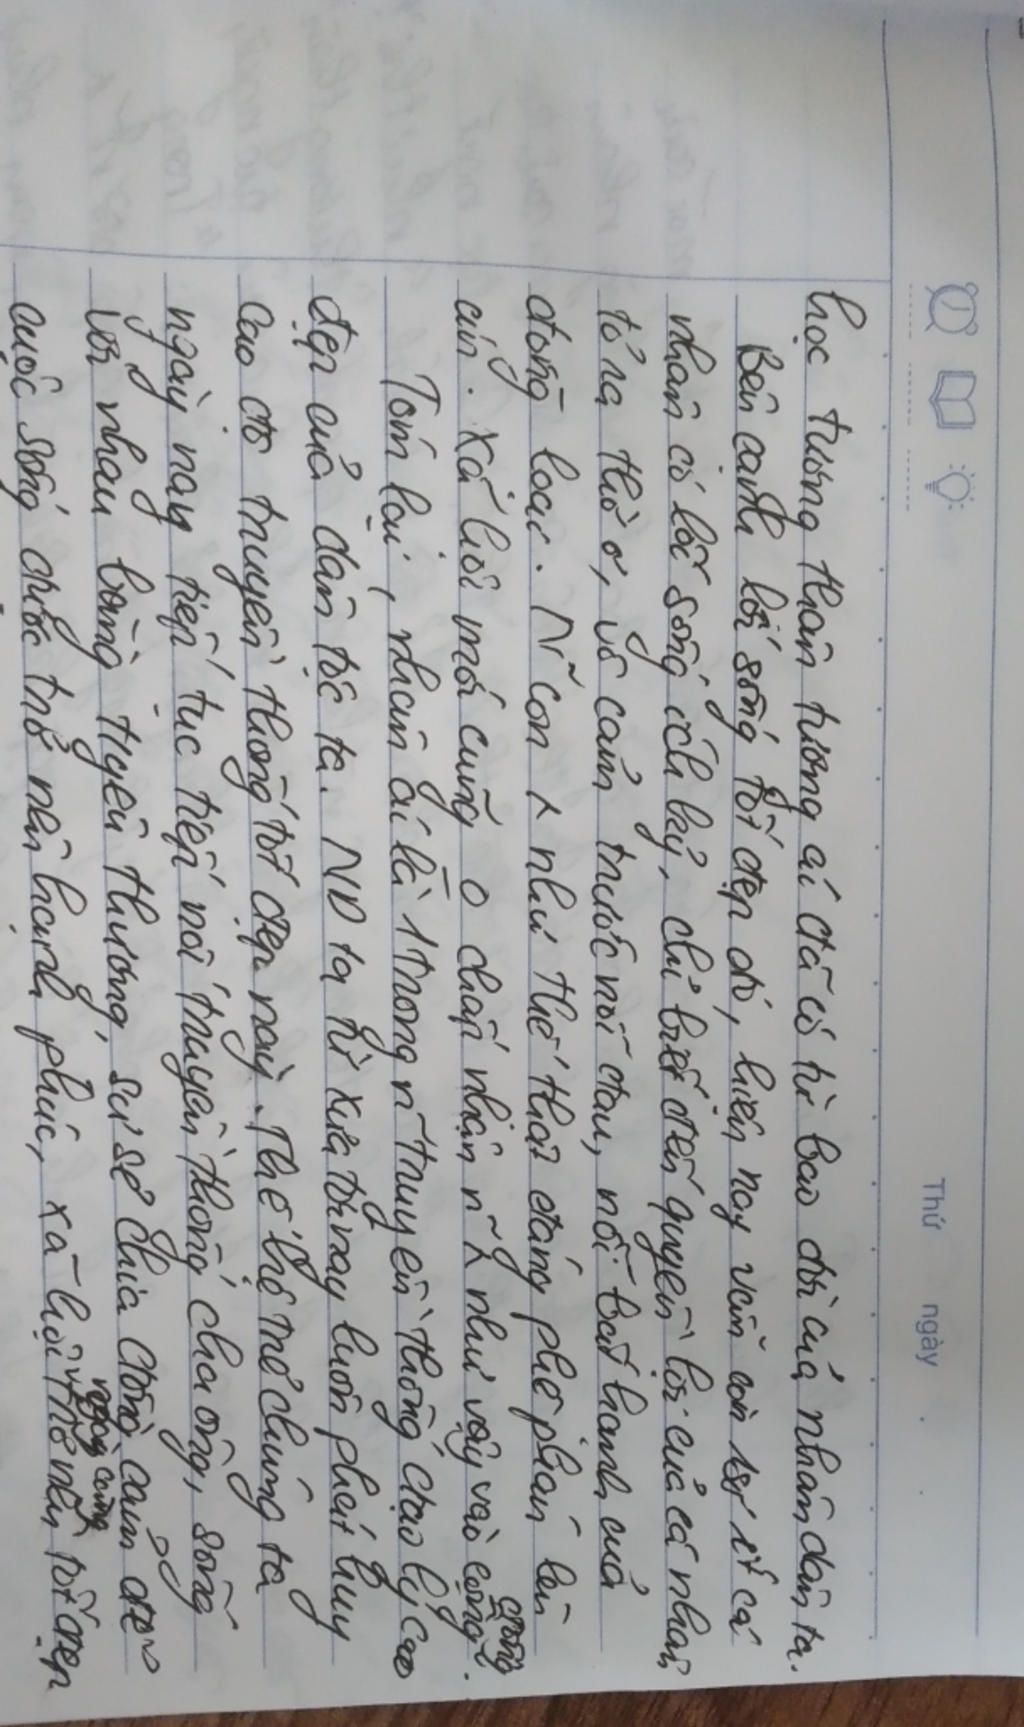 Thứ ngày
học tương thân tương ái đã có từ bao đời của nhân dân ta.
Bên cạnh lối sống tốt đẹp đó, hiện nay vẫn còn 1 số ít cá
nhân có lối sống ích kỷ, chỉ biết đến quyền lợi của cá nhân,
tỏ ra thờ ơ, vô cảm trước nỗi đau, nỗi bất hạnh của
đồng loại. N~ con ng như thế thật đáng phê phán lên
án. Xã hội mới cũng o chấp nhận n~ ng như vậy vào cộng đồng.
Tóm lại, nhân ái là 1 trong n~ truyền thống đạo lý cao
đẹp của dân tộc ta. ND ta từ xưa tới nay luôn phát huy
cao độ truyền thống tốt đẹp này. Thế hệ trẻ chúng ta
ngày nay tiếp tục tiếp nối truyền thống cha ông, sống
với nhau bằng tình yêu thương, sự sẻ chia đồng cảm để
cuộc sống được trở nên hạnh phúc, xã hội trở nên ngày càng tốt đẹp